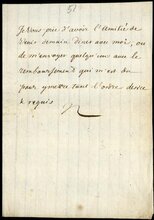 51
Je vous prie d'avoir l'amitié de
venir demain diner avec moi, ou
de m'envoyer quelqu'un avec le
remboursement qui m'est du
pour y mettre tout l'ordre desiré
& requis